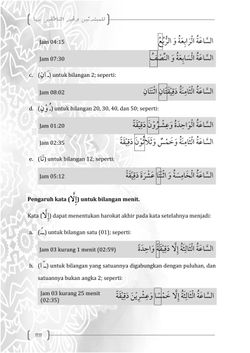 Jam 04:15 السَّاعَةُ الْرَابِعَةُ وَ الرُّبْعُ
Jam 07:30 السَّاعَةُ السَّابِعَةُ وَ النِّصْفُ
c. (ـَانِ) untuk bilangan 2; seperti:
Jam 08:02 السَّاعَةُ الثَّامِنَةُ دَقِيْقَتَانِ اثْنَتَانِ
d. (ـُوْنَ) untuk bilangan 20, 30, 40, dan 50; seperti:
Jam 01:20 السَّاعَةُ الْوَاحِدَةُ وَعِشْرُوْنَ دَقِيْقَةً
Jam 02:35 السَّاعَةُ الثَّانِيَةُ وَخَمْسٌ وَثَلَاثُوْنَ دَقِيْقَةً
e. (ـَا) untuk bilangan 12; seperti:
Jam 05:12 السَّاعَةُ الْخَامِسَةُ وَ اثْنَتَا عَشْرَةَ دَقِيْقَةً
Pengaruh kata (إِلَّا) untuk bilangan menit.
Kata (إِلَّا) dapat menentukan harokat akhir pada kata setelahnya menjadi:
a. untuk bilangan satu (01); seperti:
Jam 03 kurang 1 menit (02:59) السَّاعَةُ الثَّالِثَةُ إِلَّا دَقِيْقَةً وَاحِدَةً
b. untuk bilangan yang satuannya digabungkan dengan puluhan, dan
satuannya bukan angka 2; seperti:
Jam 03 kurang 25 menit السَّاعَةُ الثَّالِثَةُ إِلَّا خَمْسًا وَعِشْرِيْنَ دَقِيْقَةً
(02:35)